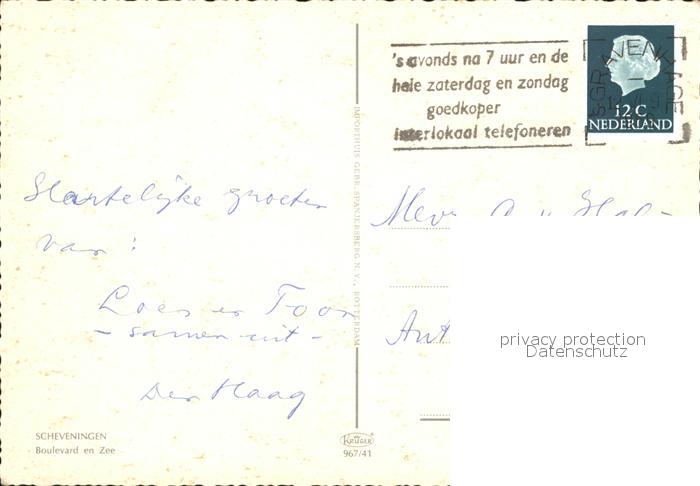 'savonds na 7 uur en de
hele zaterdag en zondag
goedkoper
interlokaal telefoneren
'SGRAVENHAGE
12 C
NEDERLAND
Hartelijke groeten
van :
Loes en Toon
- samen uit -
Den Haag
SCHEVENINGEN
Boulevard en Zee
IMPORTHUIS GEBR. SPANJERSBERG N.V., ROTTERDAM
KRÜGER
967/41
Mevr
Ant
privacy protection
Datenschutz